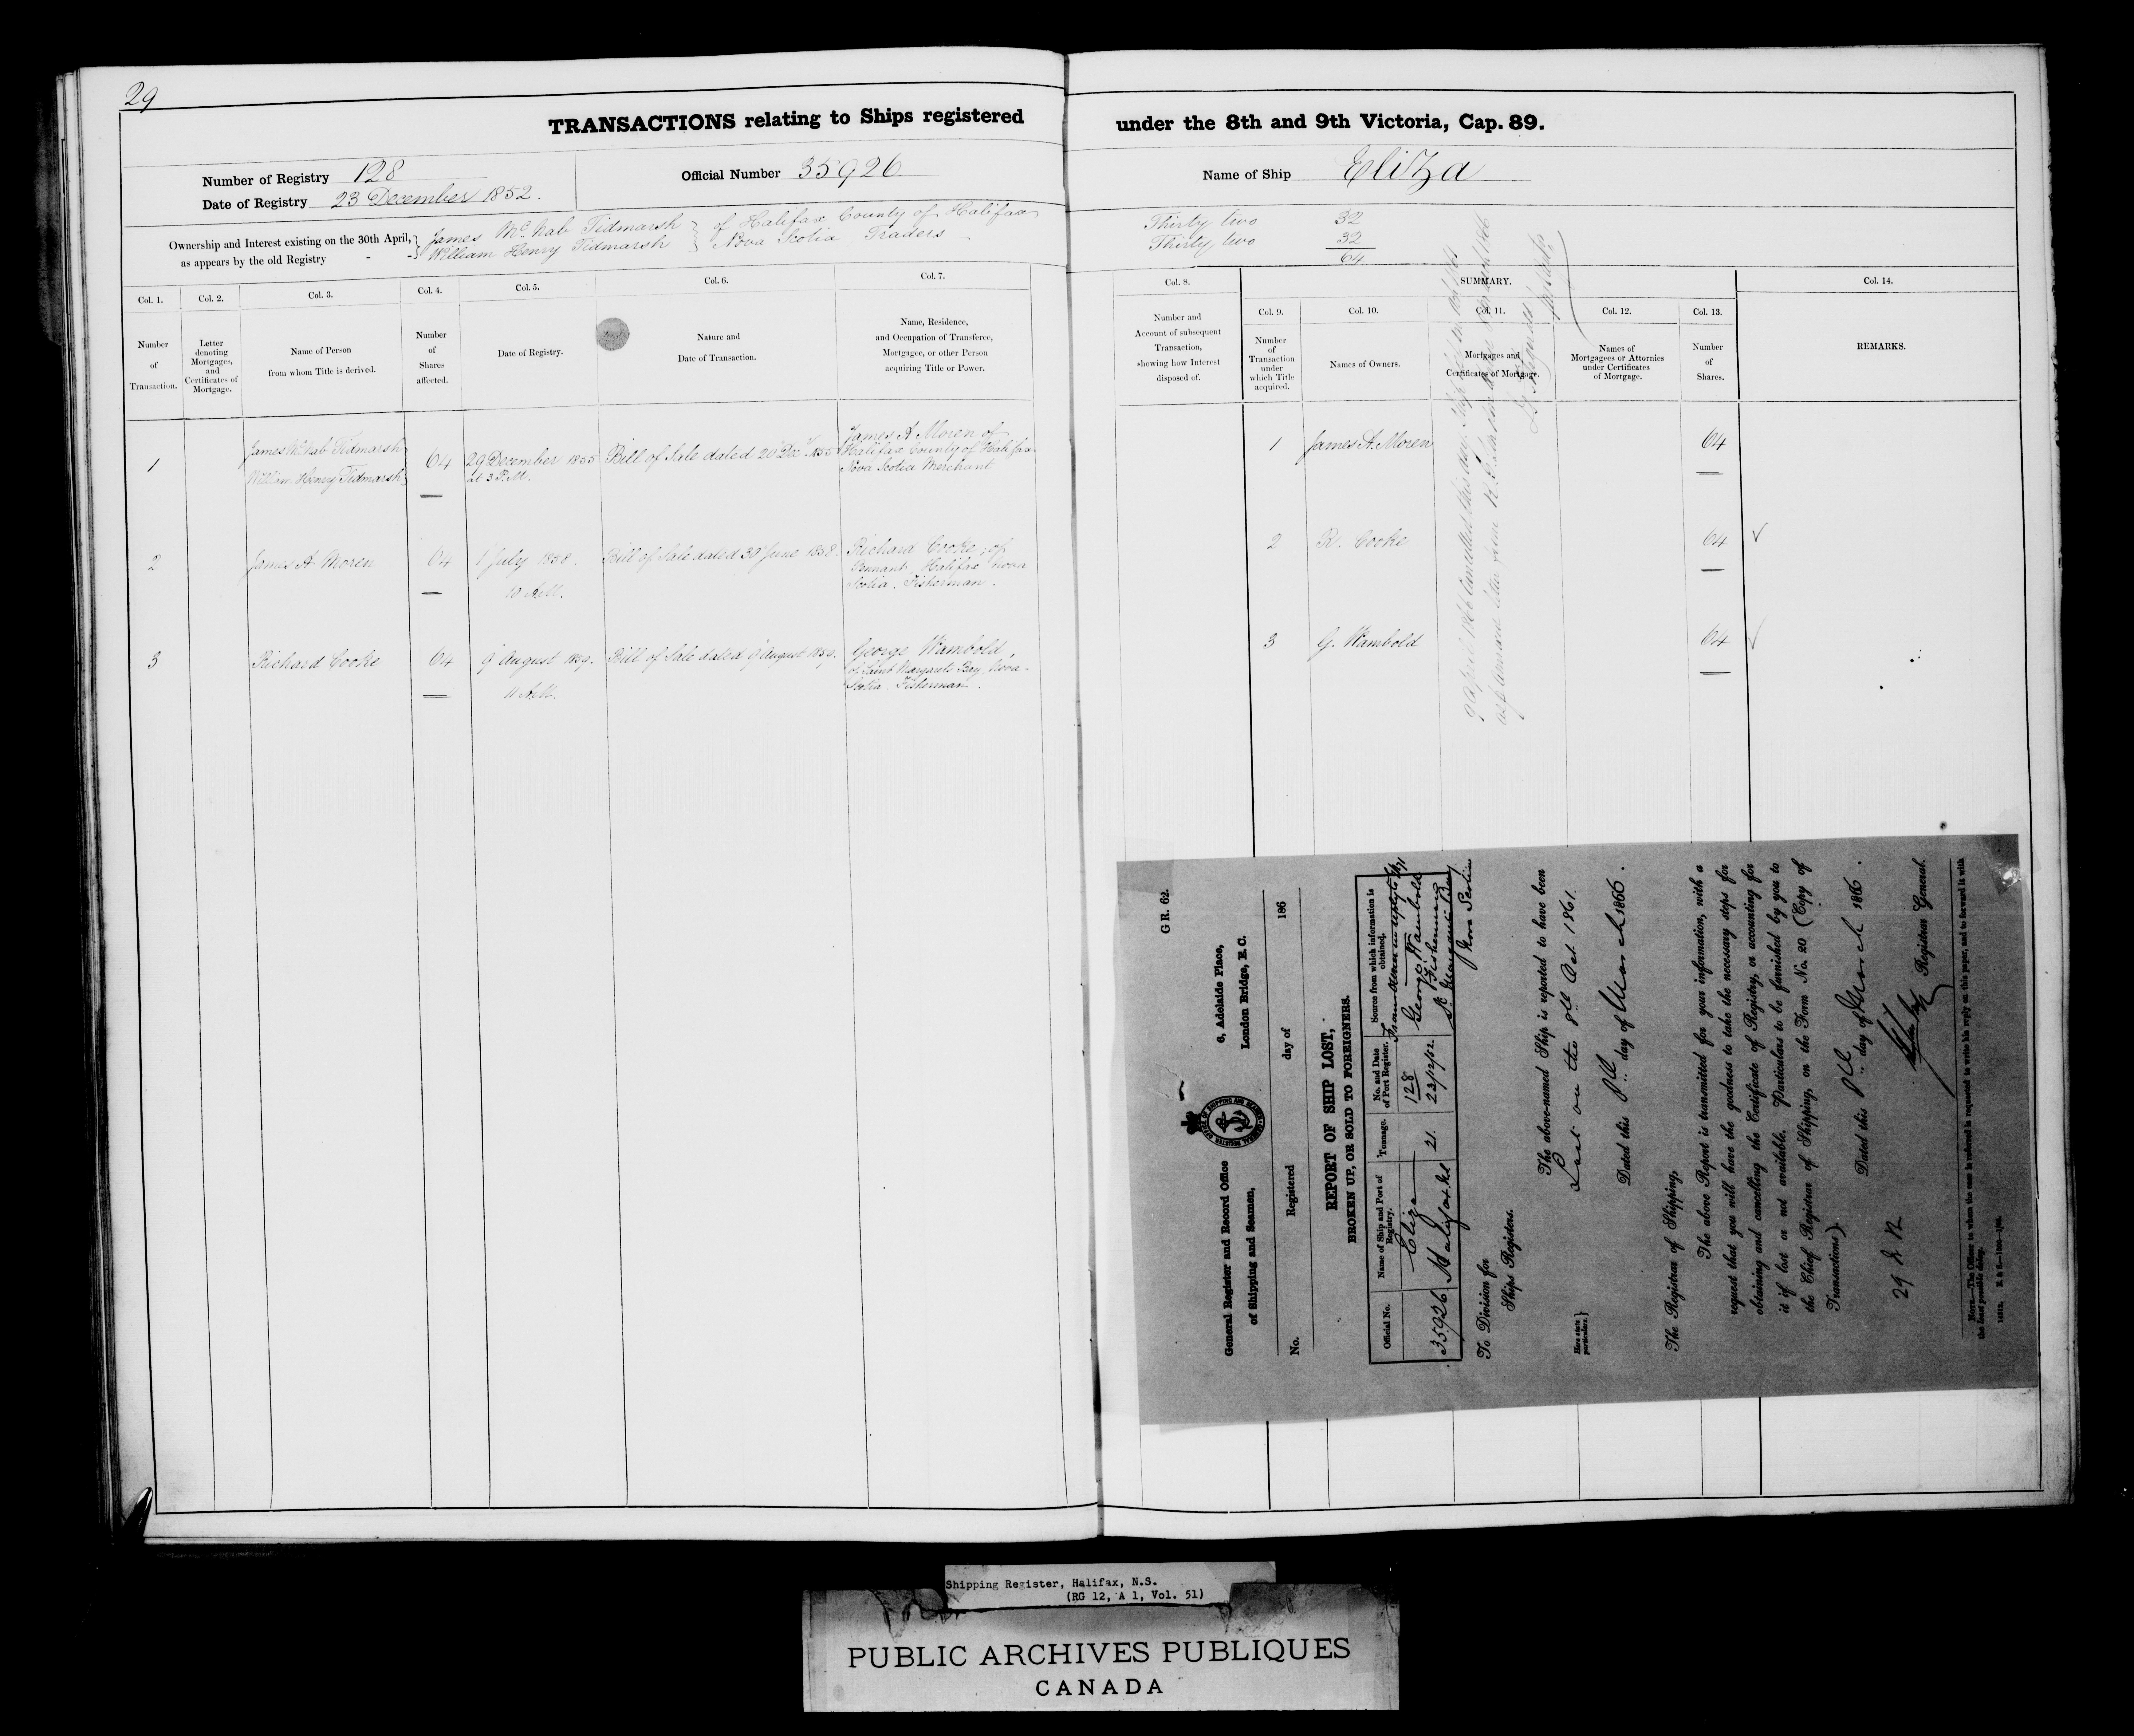 29
TRANSACTIONS relating to Ships registered under the 8th and 9th Victoria, Cap. 89.
Number of Registry 128
Date of Registry 23 December 1852.
Official Number 35926
Name of Ship Eliza
Ownership and Interest existing on the 30th April,
as appears by the old Registry - -
James McNab Tidmarsh
William Henry Tidmarsh
of Halifax County of Halifax
Nova Scotia Traders
Thirty two 32
Thirty two 32
64
Col. 1.
Number
of
Transaction.
Col. 2.
Letter
denoting
Mortgages,
and
Certificates of
Mortgage.
Col. 3.
Name of Person
from whom Title is derived.
Col. 4.
Number
of
Shares
affected.
Col. 5.
Date of Registry.
Col. 6.
Nature and
Date of Transaction.
Col. 7.
Name, Residence,
and Occupation of Transferee,
Mortgagee, or other Person
acquiring Title or Power.
Col. 8.
Number and
Account of subsequent
Transaction,
showing how Interest
disposed of.
SUMMARY.
Col. 9.
Number
of
Transaction
under
which Title
acquired.
Col. 10.
Names of Owners.
Col. 11.
Mortgages and
Certificates of Mortgage.
Col. 12.
Names of
Mortgagees or Attornies
under Certificates
of Mortgage.
Col. 13.
Number
of
Shares.
Col. 14.
REMARKS.
1
James McNab Tidmarsh
William Henry Tidmarsh
64
29 December 1855
at 3 P.M.
Bill of Sale dated 20 Dec 1855
James A Moren of
Halifax County of Halifax
Nova Scotia Merchant
1 James A. Moren 64
2
James A Moren
64
1 July 1858.
10 A.M.
Bill of Sale dated 30 June 1858.
Richard Cooke, of
Halifax Nova
Scotia. Fisherman.
2 R. Cooke 64
3
Richard Cooke
64
9 August 1859.
11 A.M.
Bill of Sale dated 9 August 1859.
George Wambold,
of Saint Margarets Bay, Nova-
Scotia. Fisherman.
3 G. Wambold 64
9 April 1866 Cancelled this day
G R. 62.
General Register and Record Office
of Shipping and Seamen,
6, Adelaide Place,
London Bridge, E.C.
No. Registered day of 186
REPORT OF SHIP LOST,
BROKEN UP, OR SOLD TO FOREIGNERS.
Official No.
Name of Ship and Port of
Registry.
Tonnage.
No. and Date
of Port Register.
Source from which information is
obtained.
35926
Eliza
Halifax NS
21.
128
23/12/52.
George Wambold
Fisherman
St Margarets Bay
Nova Scotia
To Division for
Ships Registers.
The above-named Ship is reported to have been
Here state
particulars.
Lost on the 8th Oct. 1861.
Dated this 8th day of March 1866.
The Registrar of Shipping,
The above Report is transmitted for your information, with a
request that you will have the goodness to take the necessary steps for
obtaining and cancelling the Certificate of Registry, or accounting for
it if lost or not available. Particulars to be furnished by you to
the Chief Registrar of Shipping, on the Form No. 20 (Copy of
Transactions).
Dated this 8th day of March 1866.
Registrar General.
NOTE.—The Officer to whom the case is referred is requested to write his reply on this paper, and to forward it with
the least possible delay.
Shipping Register, Halifax, N.S.
(RG 12, A 1, Vol. 51)
PUBLIC ARCHIVES PUBLIQUES
CANADA